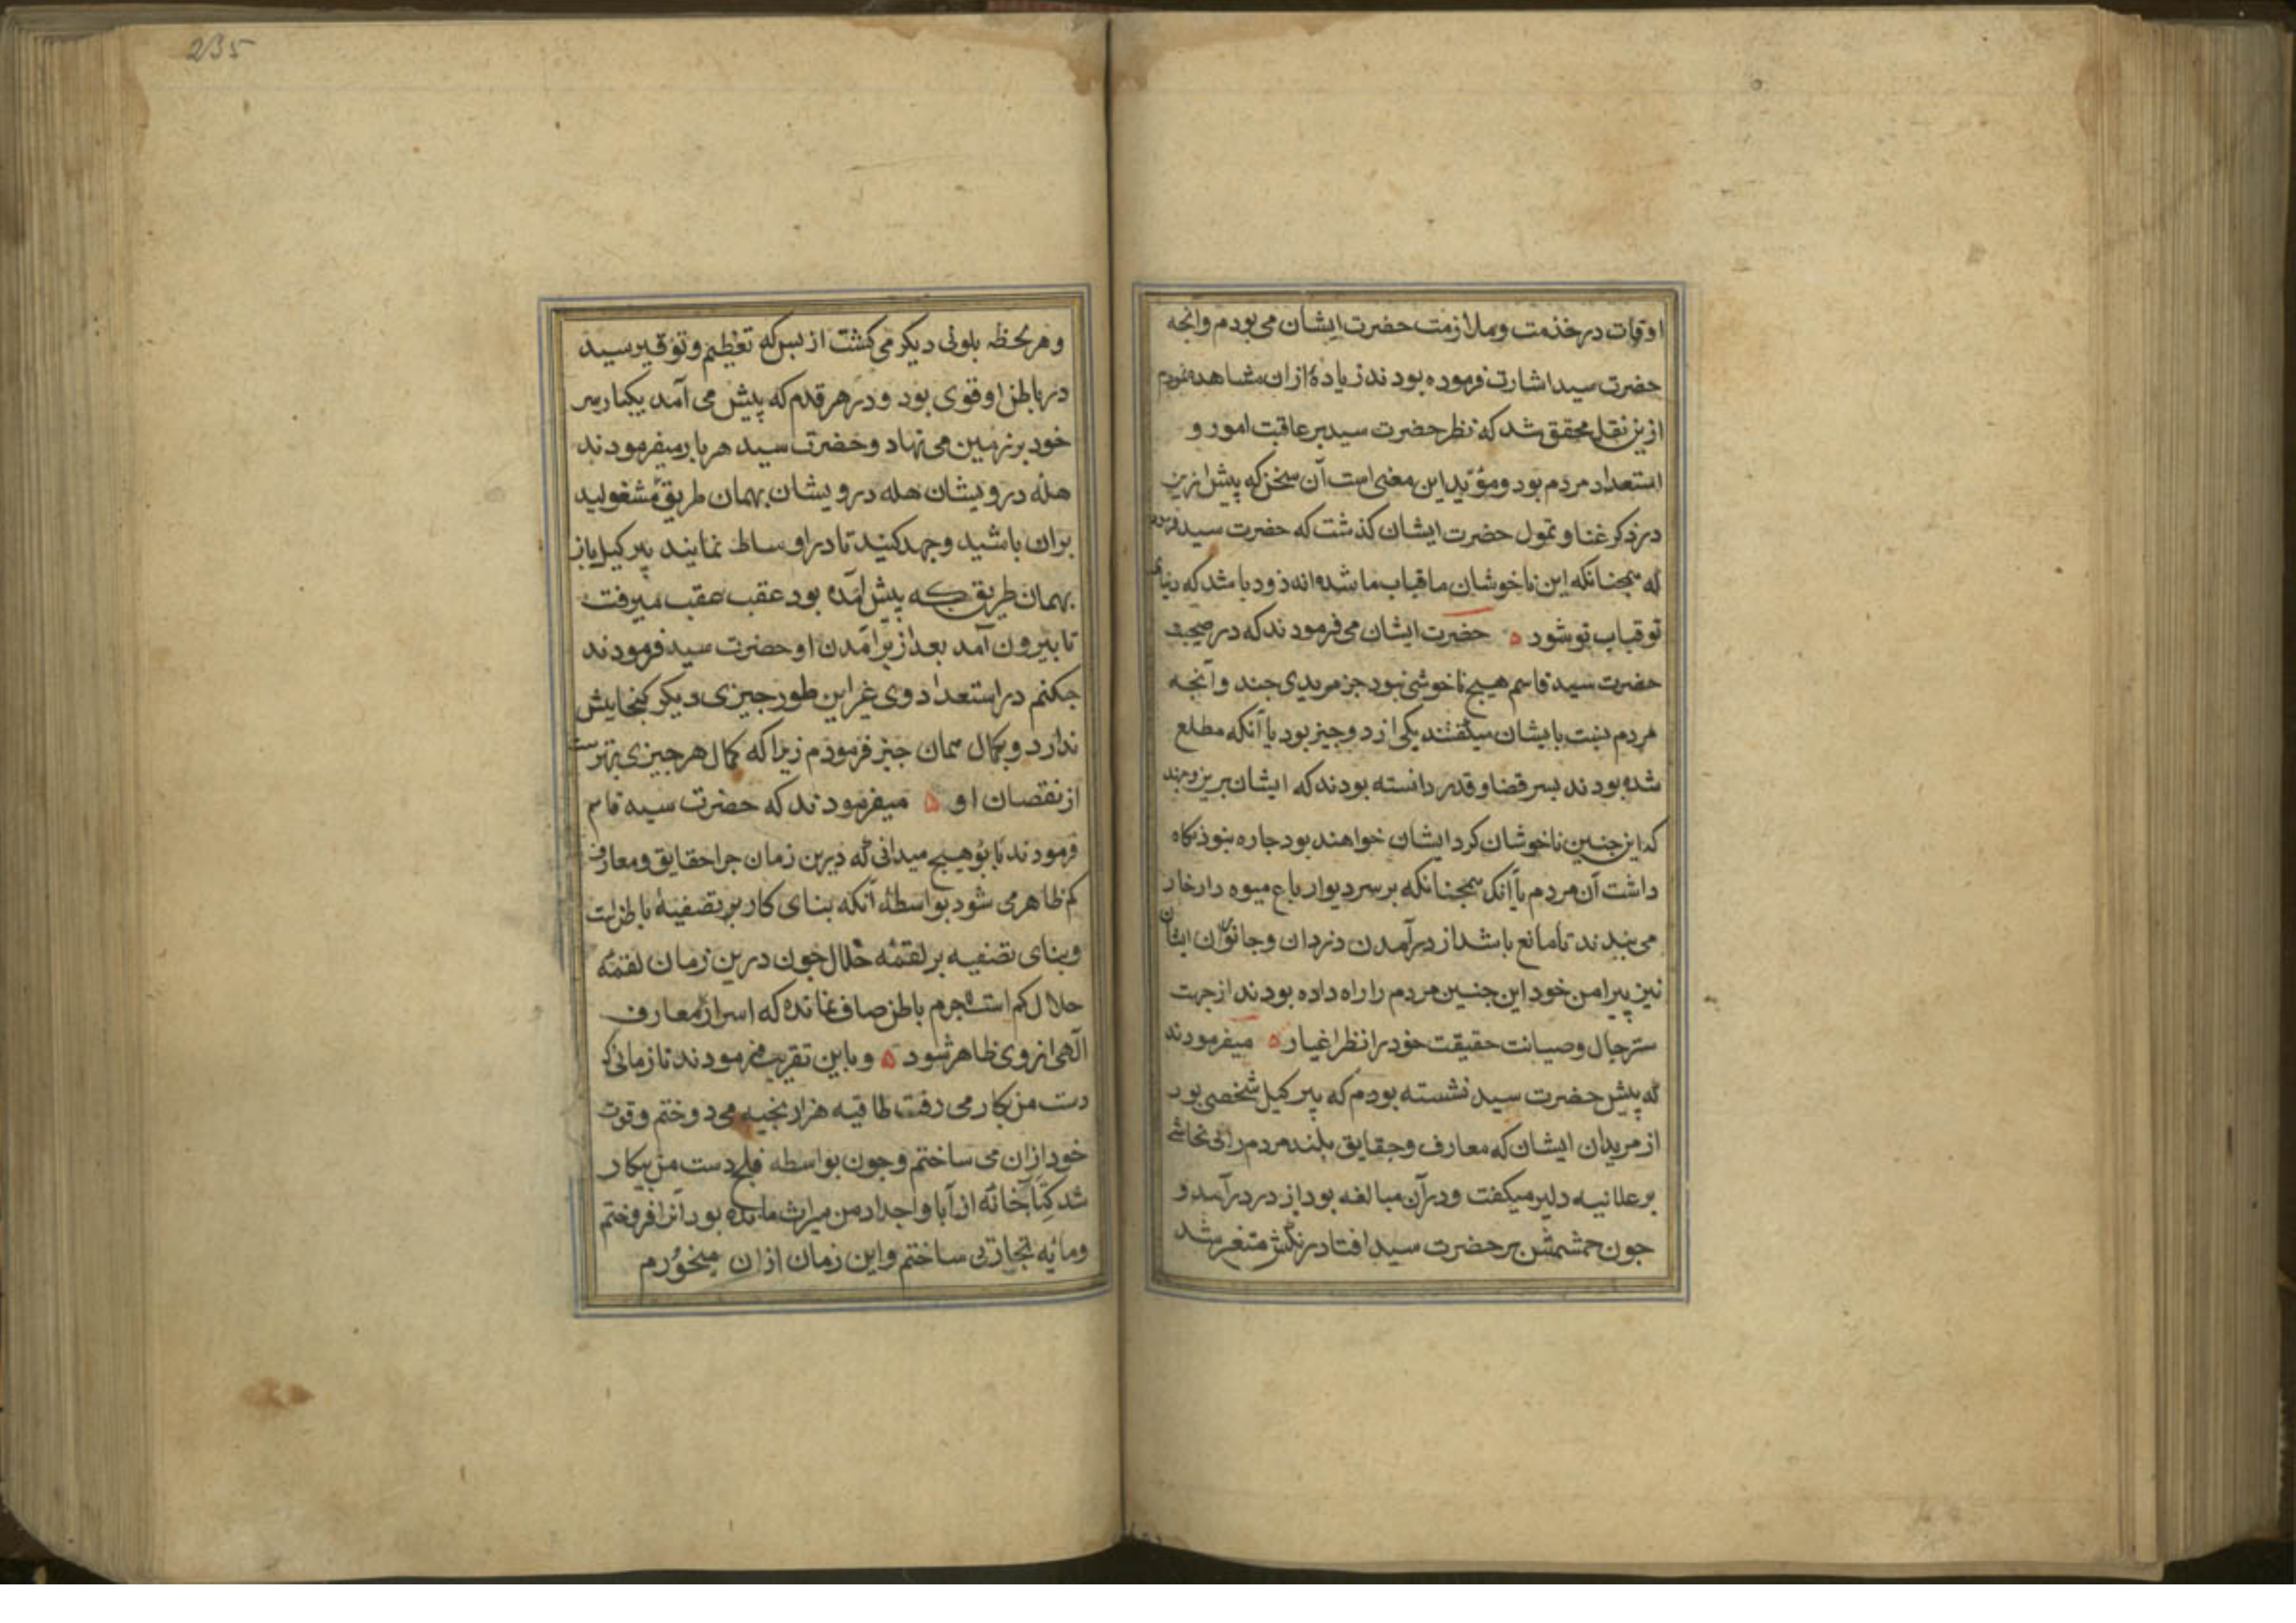 اوقات در خدمت و ملازمت حضرت ایشان می بودم و انجه
حضرت سید اشارت فرموده بودند زیادۀ ازان مشاهده نمودم
ازین نقل محقق شد که نظر حضرت سید بر عاقبت امور و
استعداد مردم بود و مؤید این معنی است آن سخن که پیش ازین
در ذکر غنا و تمول حضرت ایشان کذشت که حضرت سید فرمودند
که همجنانکه این ناخوشان ما قباب ما شده اند زود باشد که دنیای
تو قباب تو شود ه حضرت ایشان می فرمودند که در صحبت
حضرت سید قاسم هیچ ناخوشی نبود جز مریدی جند و آنجه
مردم نسبت بایشان میکفتند یکی از دو جیز بود یا آنکه مطلع
شده بودند بسر قضا و قدر دانسته بودند که ایشان برین وجهند
که این جنین ناخوشان کرد ایشان خواهند بود جاره نبود نکاه
داشت آن مردم یا آنک همجنانکه بر سر دیوار باغ میوه دار خار
می بندند تا مانع باشد از درآمدن دزدان و جانوران ایشان
نیز پیرامن خود این جنین مردم را راه داده بودند از جهت
ستر حال و صیانت حقیقت خود را از نظر اغیار ه میفرمودند
که پیش حضرت سید نشسته بودم که پیر کیل شخصی بود
از مریدان ایشان که معارف و حقایق بلند مردم را بی تحاشی
بر علانیه دلیر میکفت و در آن مبالغه بود از در درآمد و
جون جشمش بر حضرت سید افتاد رنکش متغیر شد
235
و هر لحظه بلونی دیکر می کشت از بس که تعظیم و توقیر سید
در باطن او قوی بود و در هر قدم که پیش می آمد یکبار سر
خود بر زمین می نهاد و حضرت سید هر بار میفرمودند
هله درویشان هله درویشان بهمان طریق مشغولید
بران باشید و جهد کنید تا در اوساط نمایند پیر کیل باز
بهمان طریق که پیش آمده بود عقب عقب میرفت
تا بیرون آمد بعد از برآمدن او حضرت سید فرمودند
جکنم در استعداد وی غیر این طور جیزی دیکر کنجایش
ندارد و بکمال همان جیز فرمودم زیرا که کمال هر جیزی بهتر ست
از نقصان او ه میفرمودند که حضرت سید قاسم
فرمودند بابو هیچ میدانی که درین زمان جرا حقایق و معارف
کم ظاهر می شود بواسطۀ آنکه بنای کار بر تصفیۀ باطن است
و بنای تصفیه بر لقمۀ حلال جون درین زمان لقمۀ
حلال کم است لاجرم باطن صاف نمانده که اسرار معارف
آلهی از وی ظاهر شود ه و باین تقریب فرمودند تا زمانی که
دست من بکار می رفت طاقیه هزار بخیه می دوختم و قوت
خود ازان می ساختم و جون بواسطه فلج دست من بیکار
شد کتابخانۀ از آبا و اجداد من میراث مانده بود آنرا فروختم
و مایه تجارتی ساختم و این زمان ازان میخورم